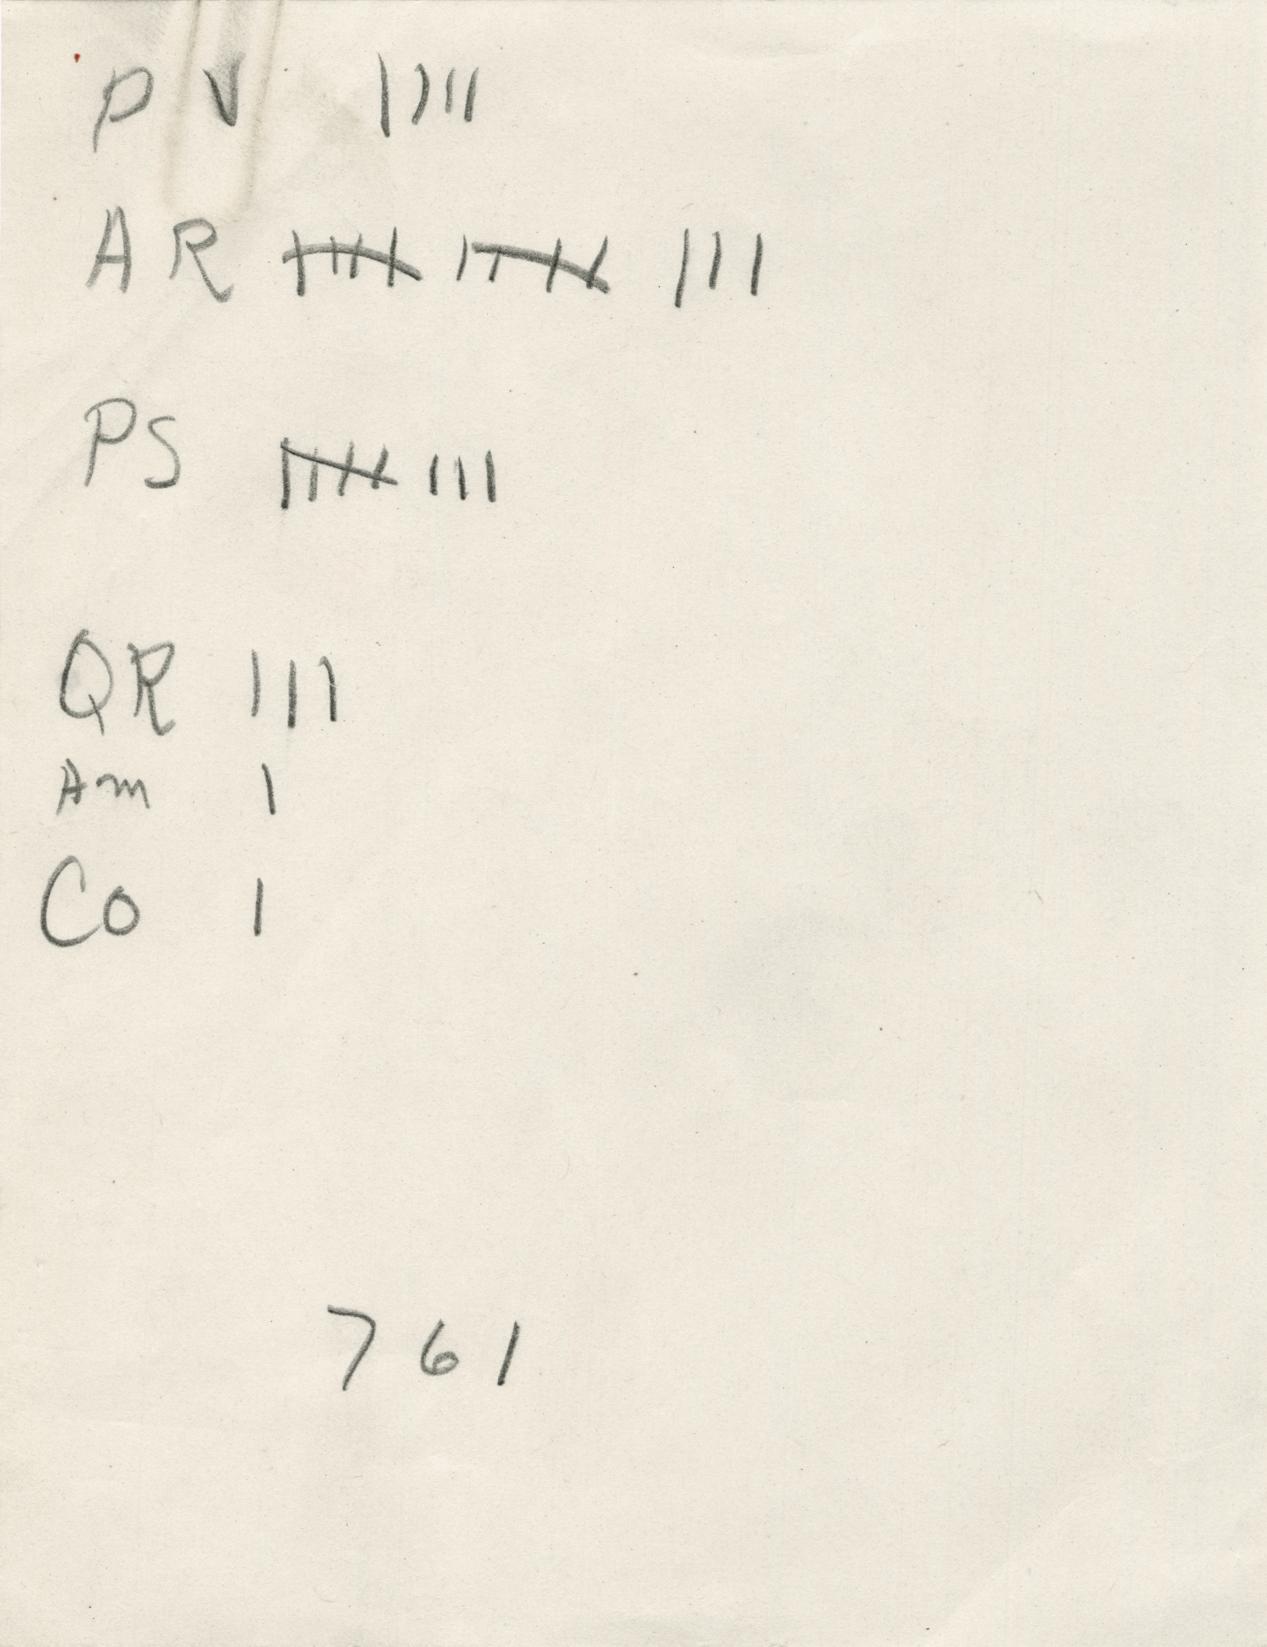 PV ||||
AR 卌 卌 |||
PS 卌 |||
QR |||
Am |
Co |
761